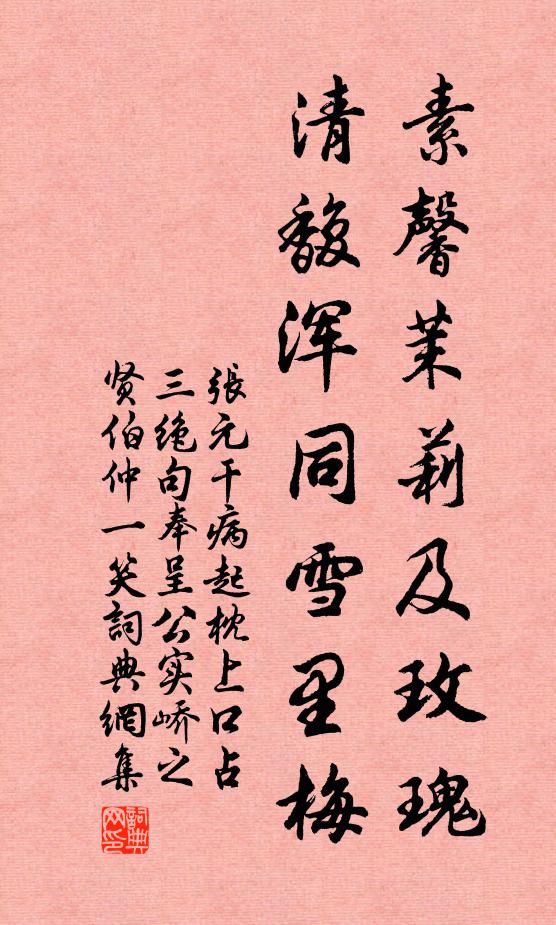 素馨茉莉及玫瑰
清馥浑同雪里梅
張元干病起枕上口占
三绝句奉呈公实峤之
贤伯仲一笑詞典網集
詞典
网印